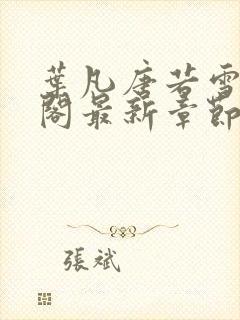 葉凡唐若雪
閣最新章節
張斌